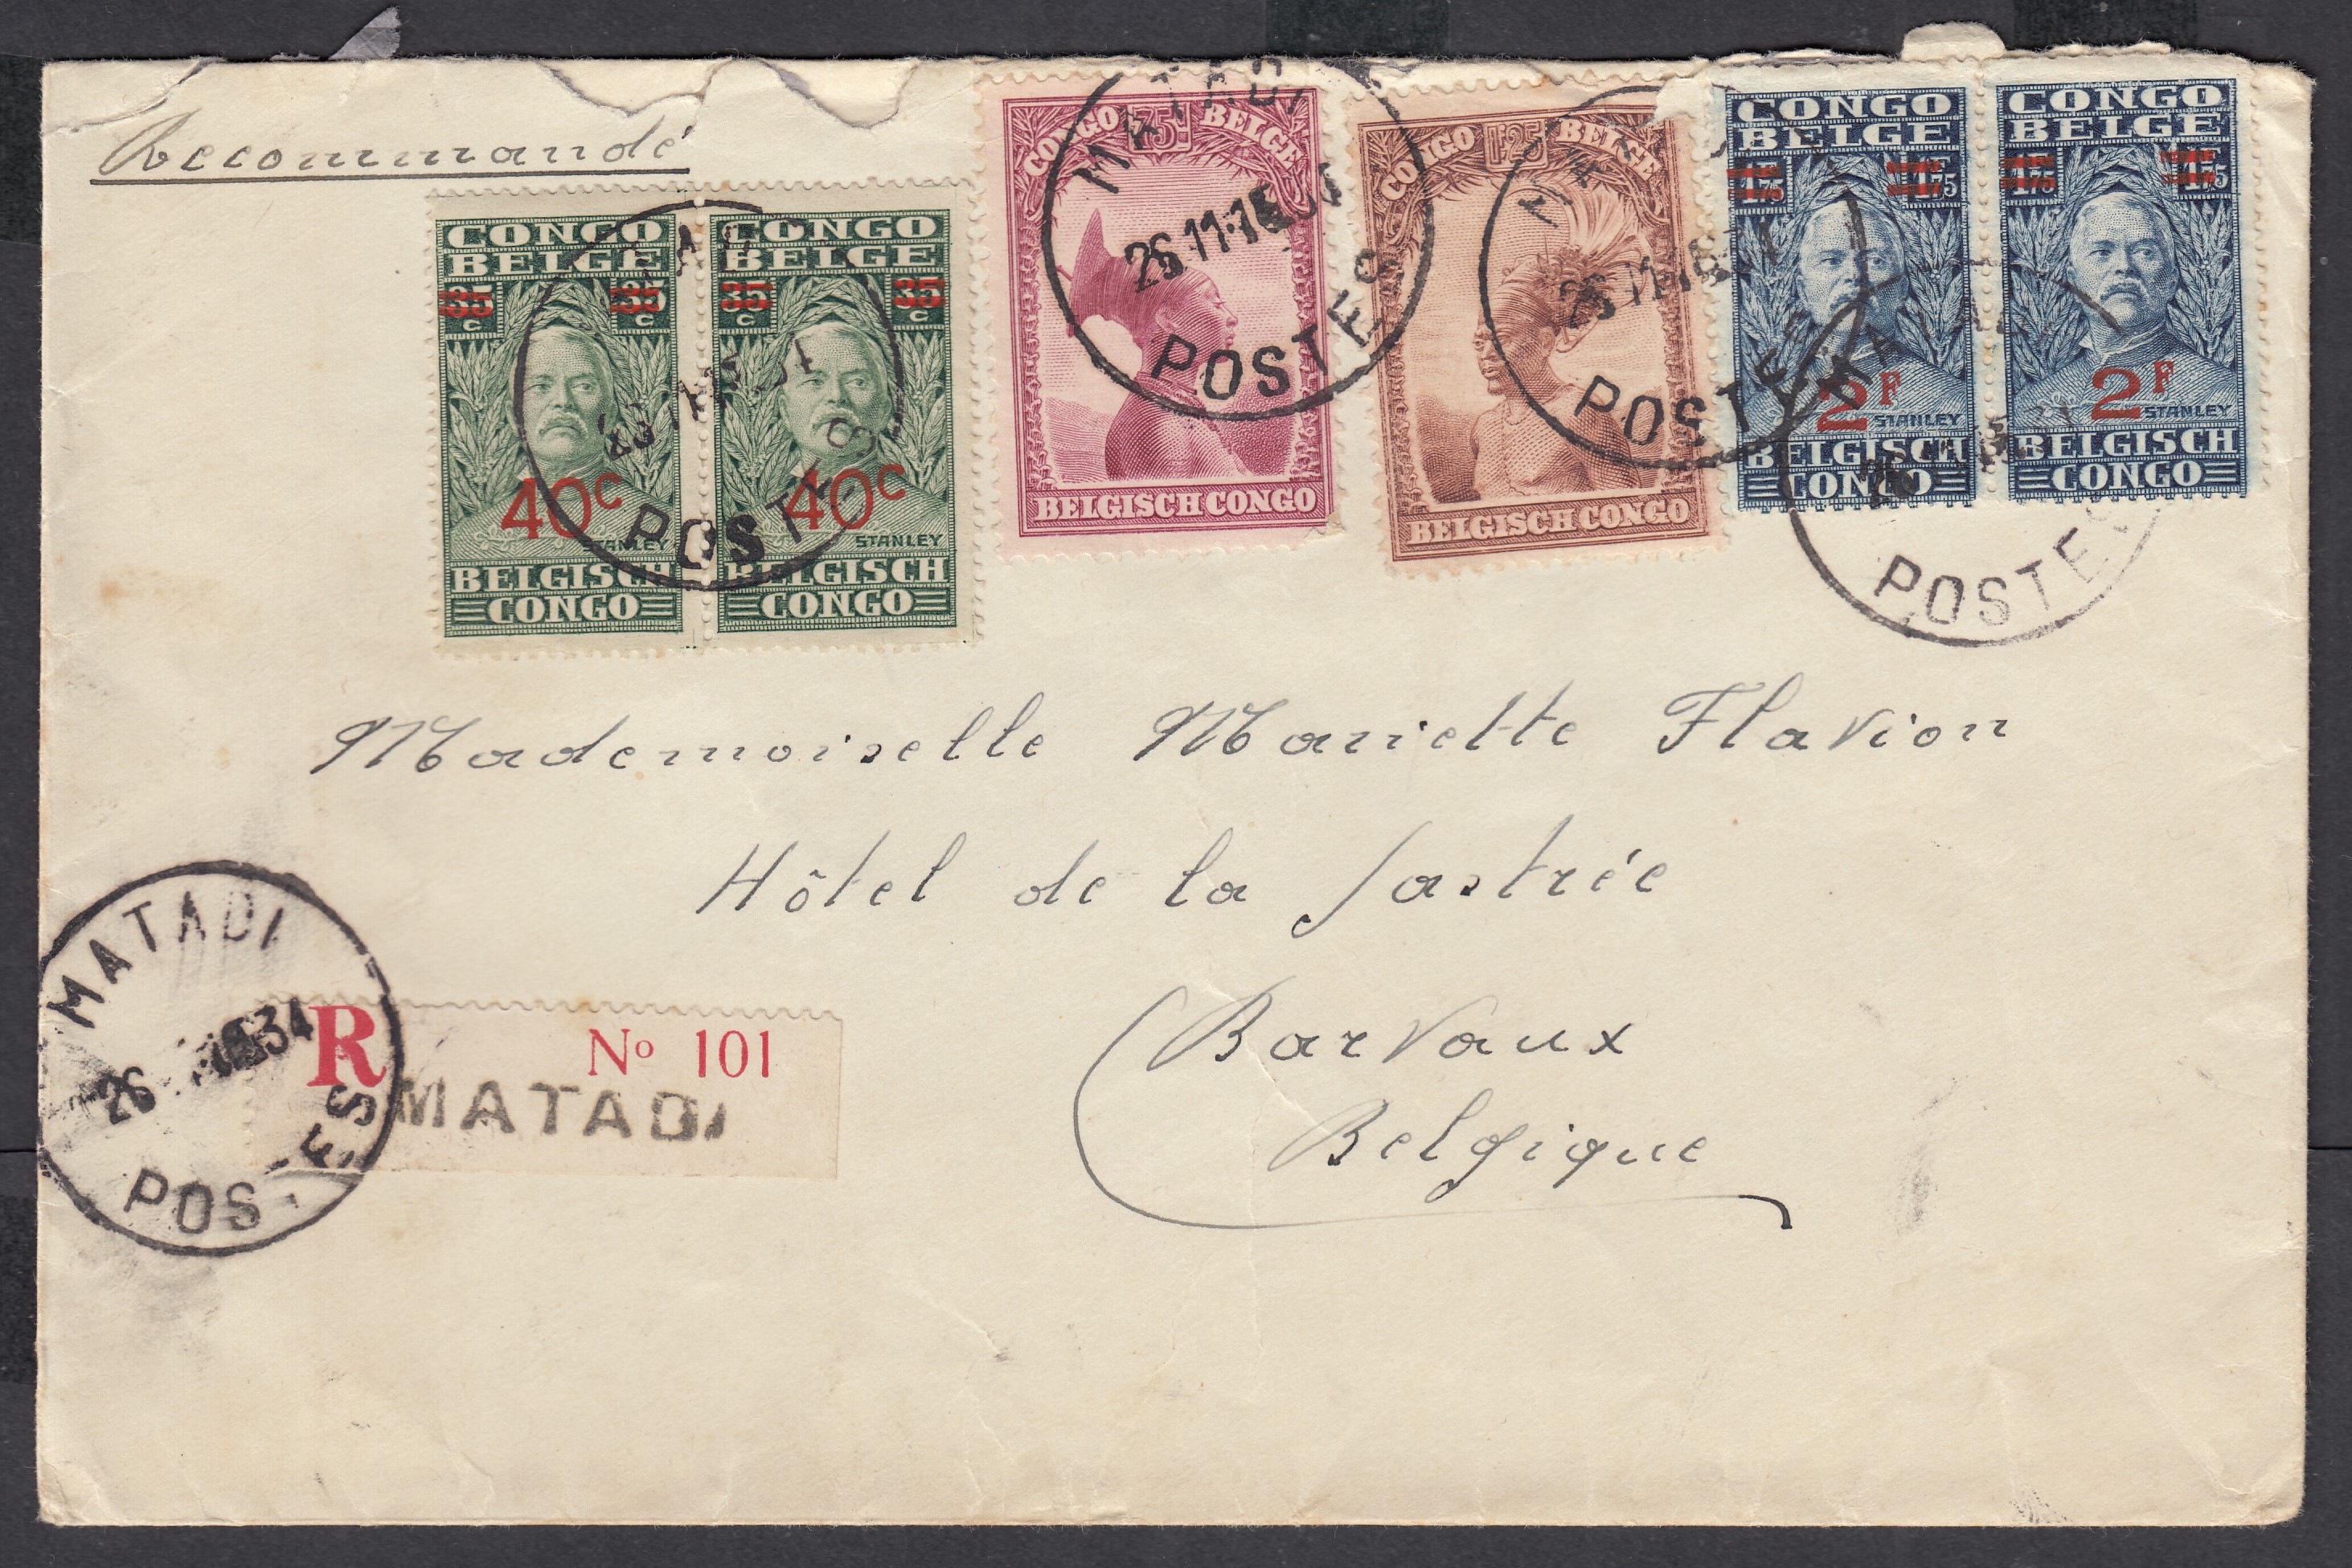 Recommandé
CONGO
BELGE
35 35
c c
40c
STANLEY
BELGISCH
CONGO
CONGO
BELGE
35 35
c c
40c
STANLEY
BELGISCH
CONGO
POSTES
CONGO 75c BELGE
BELGISCH CONGO
MATADI
26-11-18
POSTES
CONGO 1F25 BELGE
BELGISCH CONGO
POSTES
CONGO
BELGE
1F75 1F75
2F
STANLEY
BELGISCH
CONGO
CONGO
BELGE
1F75 1F75
2F
STANLEY
BELGISCH
CONGO
MATADI
POSTES
Mademoiselle Mariette Flavion
Hôtel de la Jastrée
Barvaux
Belgique
MATADI
26 34
POSTES
R No 101
MATADI